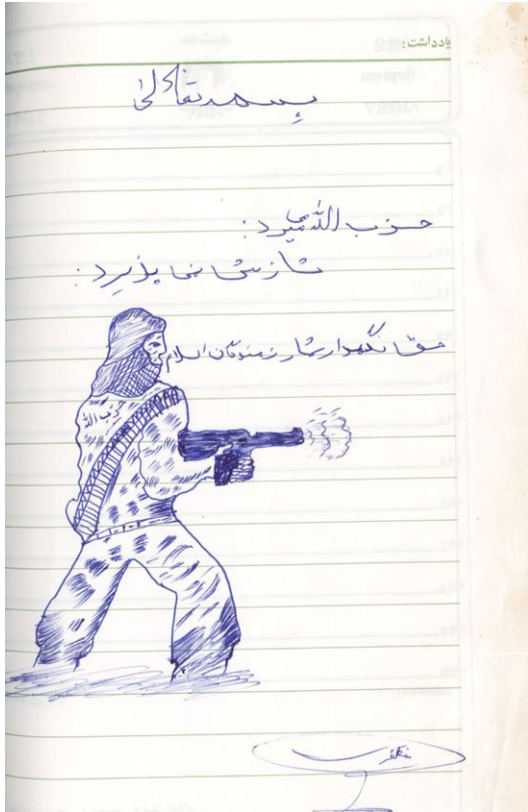 یادداشت:
بسمه تعالی
حزب الله می میرد:
سازش نمی پذیرد:
حق نگهدار شما رزمندگان اسلام
حزب الله